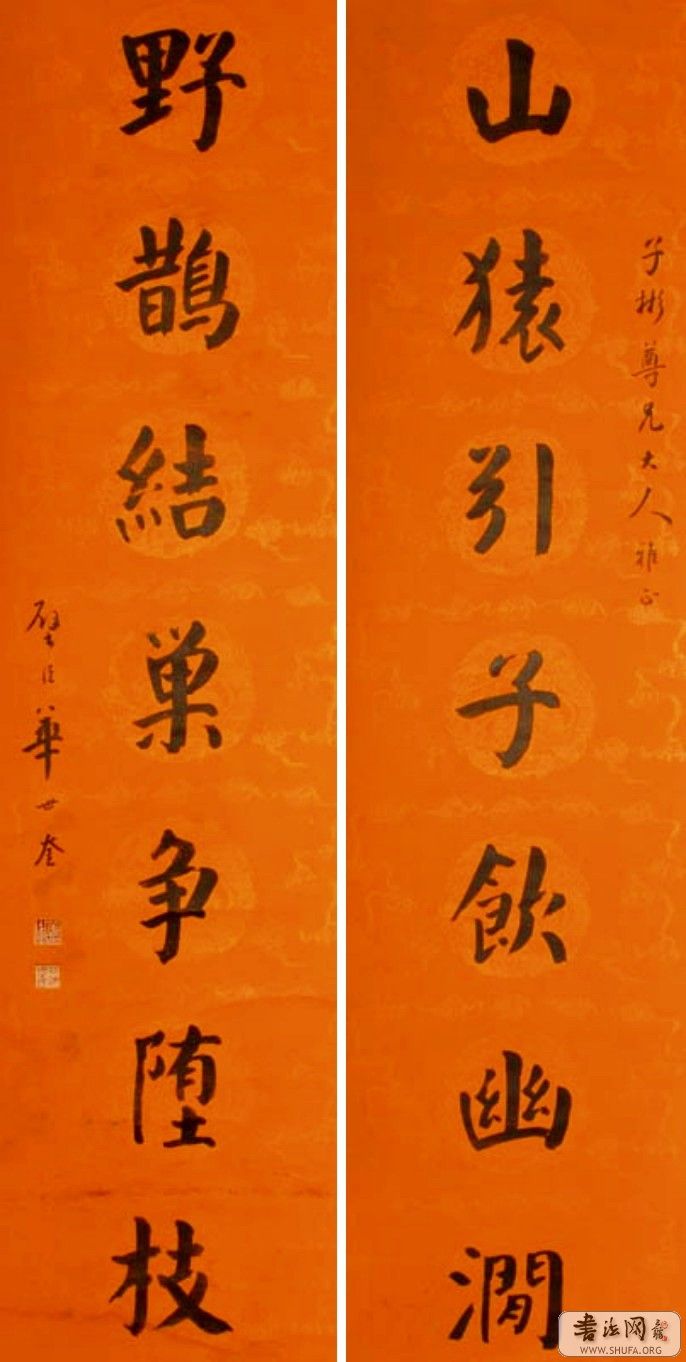 子彬尊兄大人雅正
山猿引子飲幽澗
野鵲結巢争堕枝
璧臣華世奎
書法网
WWW.SHUFA.ORG